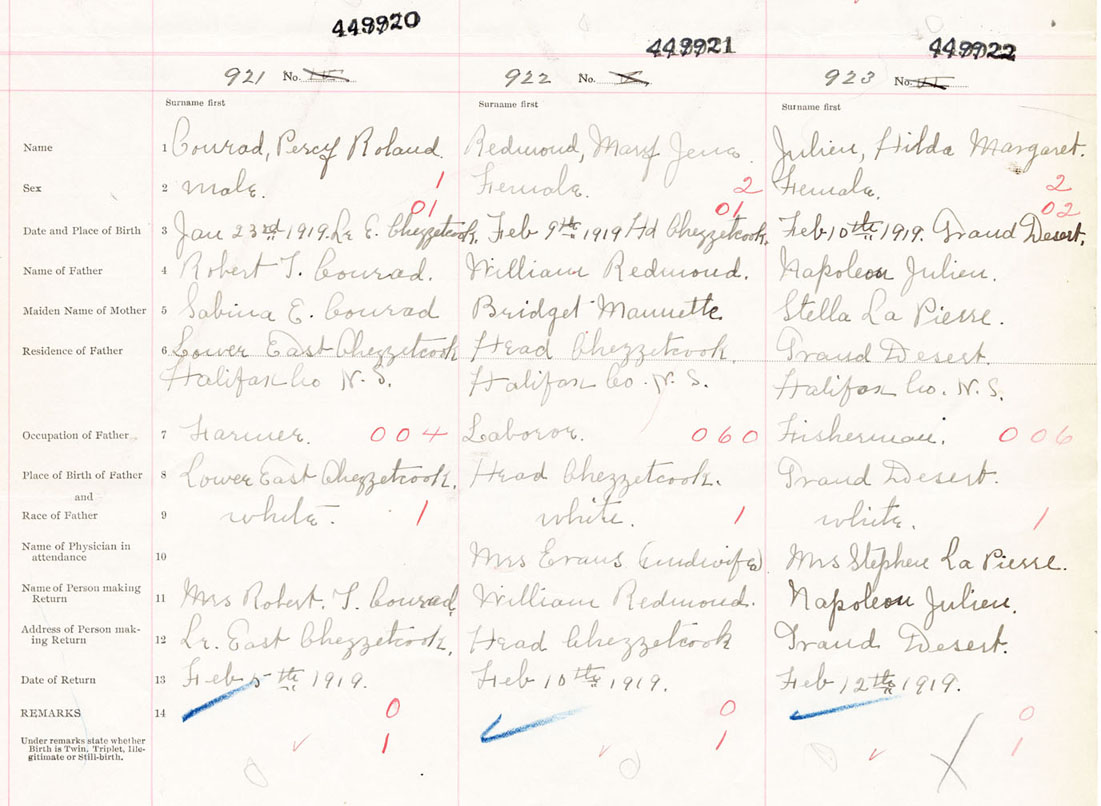 449920 449921 449922
921 No. 922 No. 923 No.
Surname first Surname first Surname first
Name 1 Conrad, Percy Roland. Redmond, Mary Jena. Julien, Hilda Margaret.
Sex 2 Male. 1 Female. 2 Female. 2
01 01 02
Date and Place of Birth 3 Jan 23rd 1919. Lr E. Chezzetcook. Feb 9th 1919 Hd Chezzetcook. Feb 10th 1919. Grand Desert.
Name of Father 4 Robert T. Conrad. William Redmond. Napoleon Julien.
Maiden Name of Mother 5 Sabina E. Conrad Bridget Mannette Stella La Pierre.
Residence of Father 6 Lower East Chezzetcook Head Chezzetcook. Grand Desert.
Halifax Co N.S. Halifax Co. N.S. Halifax Co. N.S.
Occupation of Father 7 Farmer. 004 Laboror. 060 Fisherman. 006
Place of Birth of Father 8 Lower East Chezzetcook. Head Chezzetcook. Grand Desert.
and
Race of Father 9 white. 1 white. 1 white. 1
Name of Physician in
attendance 10 Mrs Evans (midwife) Mrs Stephen La Pierre.
Name of Person making
Return 11 Mrs Robert. T. Conrad. William Redmond. Napoleon Julien.
Address of Person mak-
ing Return 12 Lr. East Chezzetcook. Head Chezzetcook Grand Desert.
Date of Return 13 Feb 5th 1919. Feb 10th 1919. Feb 12th 1919.
REMARKS 14 0 0 0
Under remarks state whether
Birth is Twin, Triplet, Ille-
gitimate or Still-birth. 1 1 1